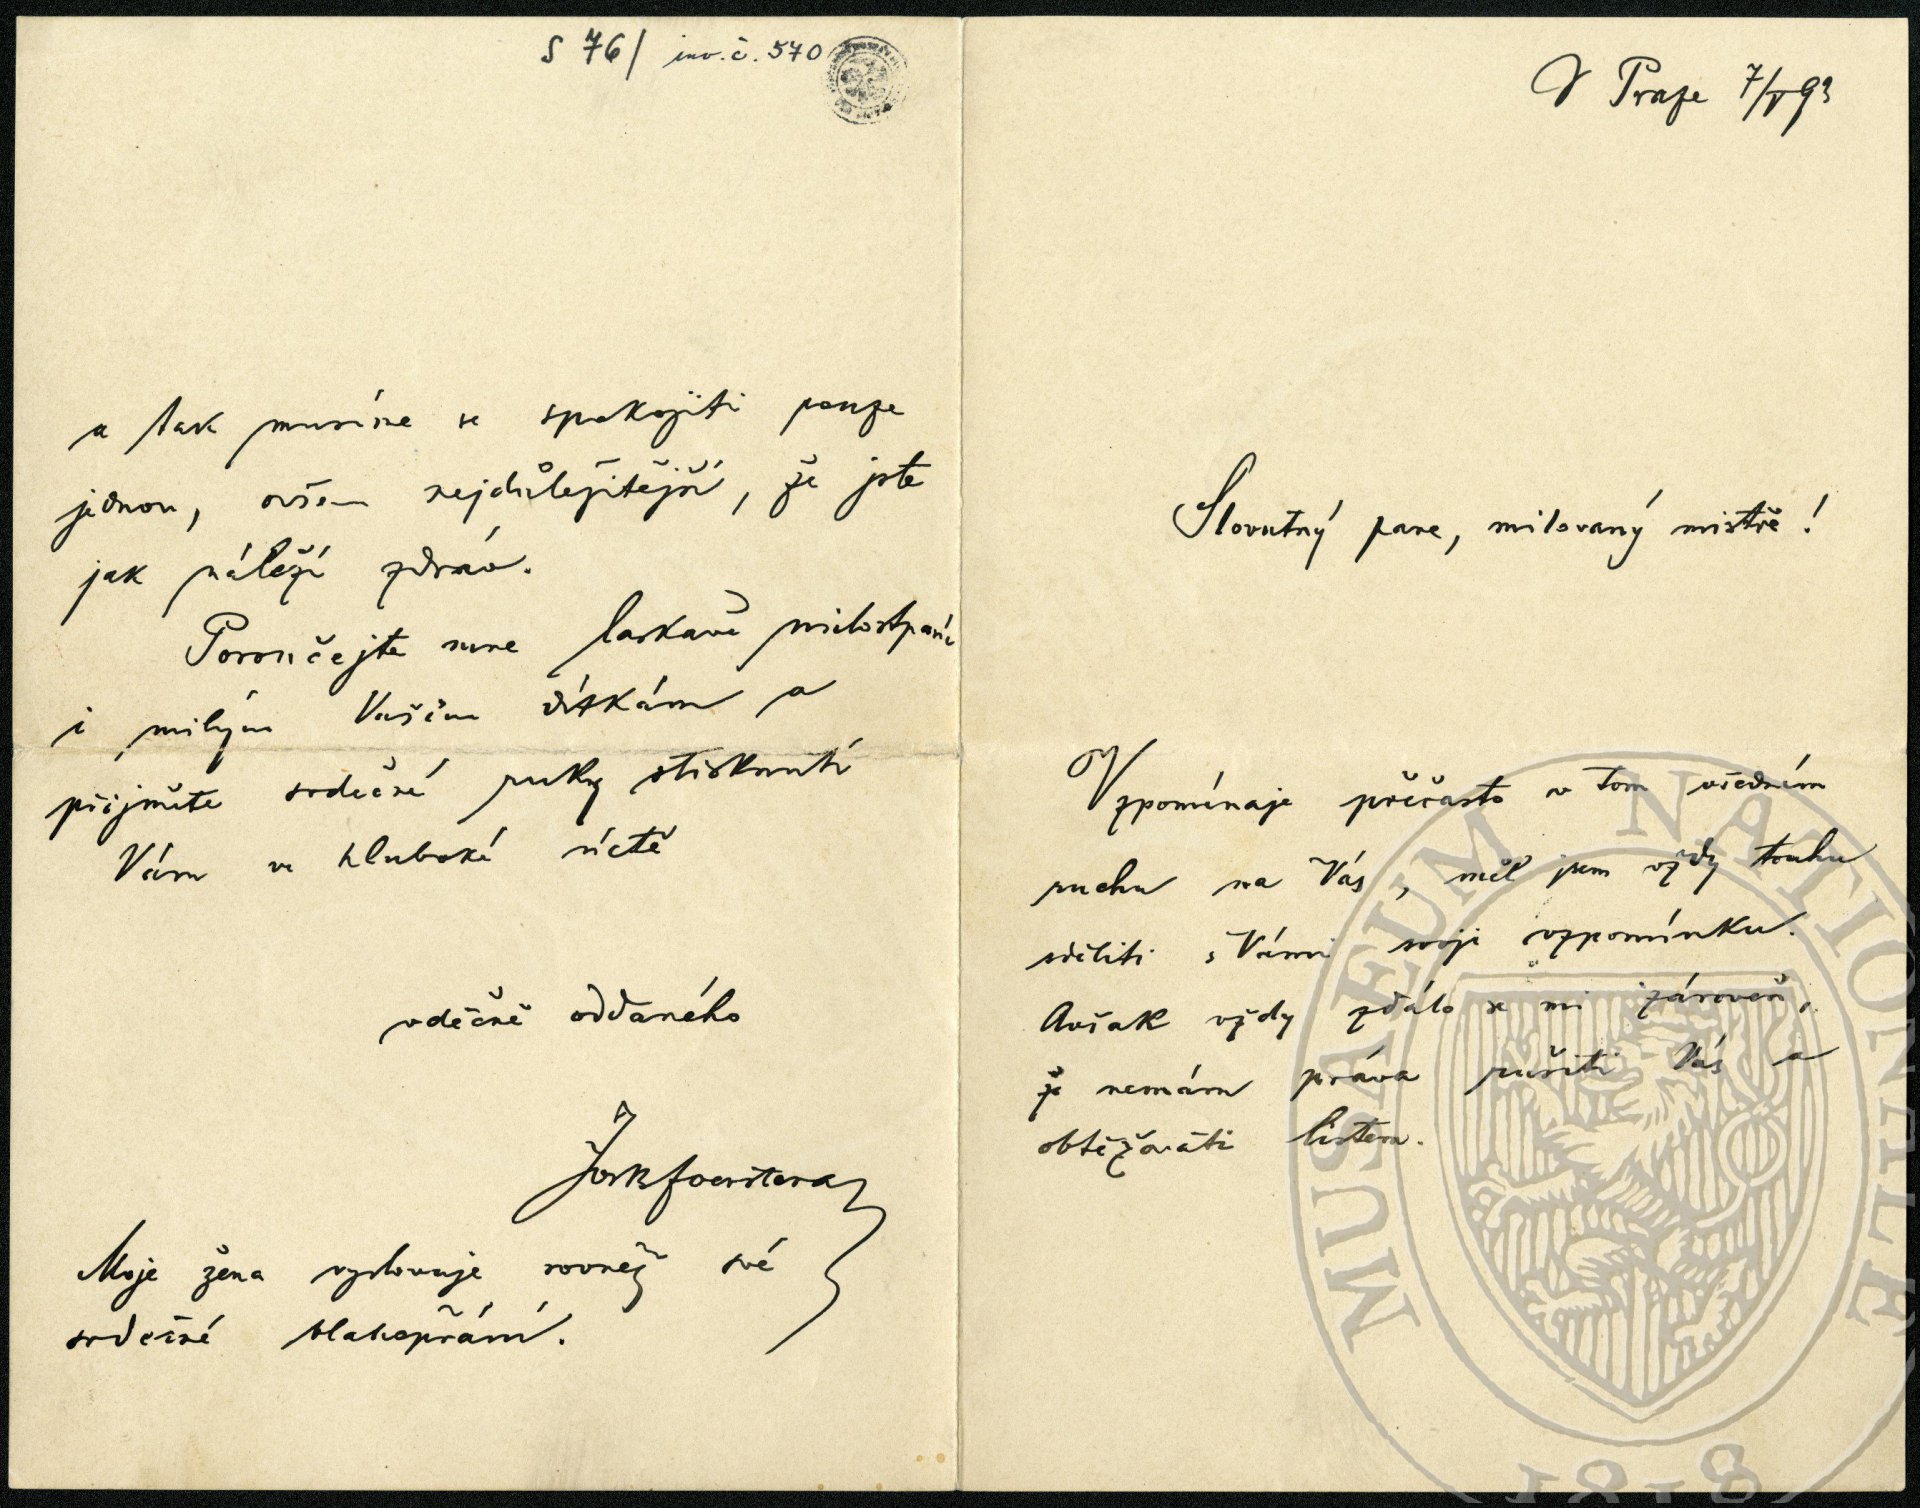 S 76/ inv. č. 570
V Praze 7/V 93
Slovutný pane, milovaný mistře!
Vzpomínaje přečasto v tom všedním
ruchu na Vás, měl jsem vždy touhu
sděliti s Vámi svoji vzpomínku.
Avšak vždy zdálo se mi zároveň,
že nemám práva rušiti Vás a
obtěžovati listem.
a tak musíme se spokojiti pouze
jednou, ovšem nejdůležitější, že jste
jak náleží zdráv.
Poroučejte mne laskavě milostpaní
i milým Vašim dítkám a
přijměte srdečné ruky stisknutí
Vám v hluboké úctě
vděčně oddaného
Jos B Foerstera
Moje žena vyslovuje rovněž své
srdečné blahopřání.
MUSAEUM NATIONALE
1818